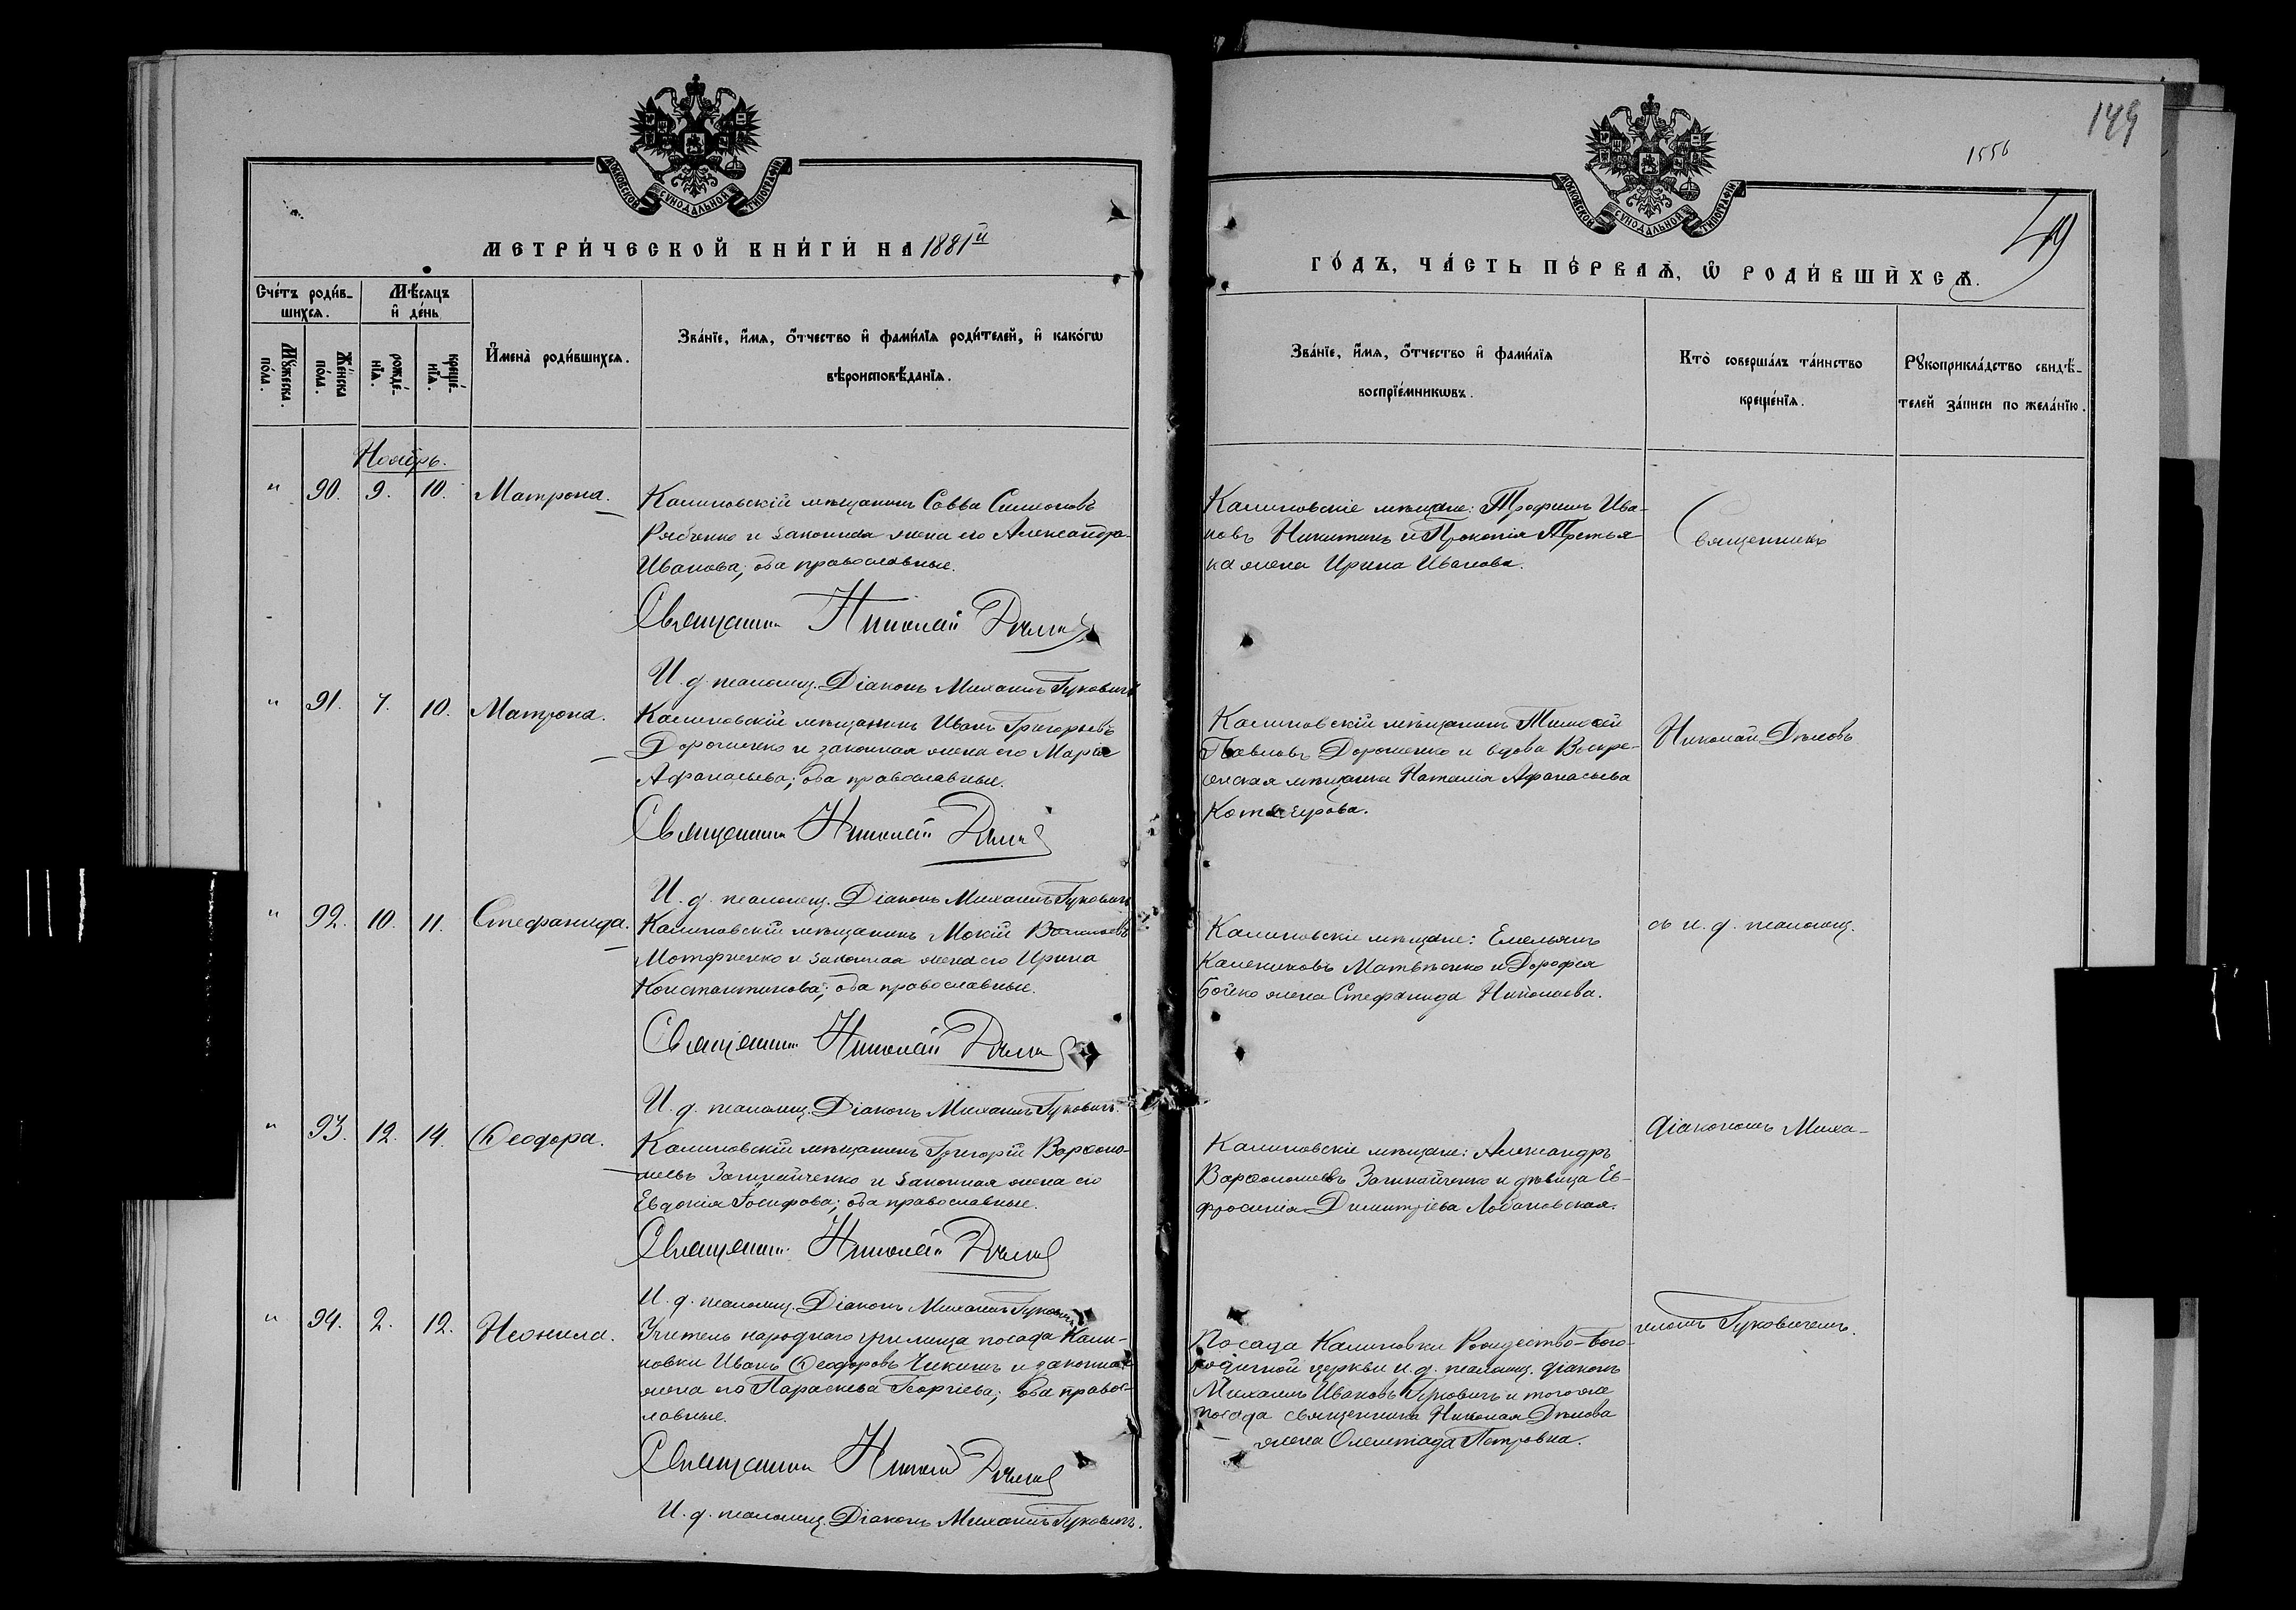 МОСКОВСКОЙ СѴНОДАЛЬНОЙ ТИПОГРАФІИ
МЕТРИ́ЧЕСКОЙ КНИ́ГИ НА 1881й
Сче́тъ роди́в-
шихся.
Мѣ́сяцъ
и де́нь
Мꙋ́жеска
по́ла.
Же́нска
по́ла.
рожде́-
нїя.
креще́-
нїя.
И҆мена̀ роди́вшихся.
Зва́нїе, и҆́мя, ѻ҆́тчество и҆ фами́лїя роди́телей, и҆ како́гѡ
вѣроисповѣ́данїя.
Ноябрь.
" 90. 9. 10. Матрона.
Калиновскій мѣщанинъ Савва Симеоновъ
Рябченко и законная жена его Александра
Иванова; оба православные.
Священникъ Николай Дѣловъ
И. д. псаломщ. Діаконъ Михаилъ Гуковичъ
" 91. 7. 10. Матрона.
Калиновскій мѣщанинъ Иванъ Григорьевъ
Дорошенко и законная жена его Марія
Афанасьева; оба православные.
Священникъ Николай Дѣловъ
И. д. псаломщ. Діаконъ Михаилъ Гуковичъ
" 92. 10. 11. Стефанида.
Калиновскій мѣщанинъ Мокій
Моторненко и законная жена его Ирина
Константинова; оба православные.
Священникъ Николай Дѣловъ
И. д. псаломщ. Діаконъ Михаилъ Гуковичъ.
" 93. 12. 14. Ѳеодора.
Калиновскій мѣщанинъ Григорій Варѳоло-
меевъ Загинайченко и законная жена его
Евдокія Іосифова; оба православные.
Священникъ Николай Дѣловъ
И. д. псаломщ. Діаконъ Михаилъ Гуковичъ
" 94. 2. 12. Неонила.
Учитель народнаго училища посада Кали-
новки Иванъ Ѳеодоровъ Чикинъ и законная
жена его Параскева Георгіева; оба правос-
лавные.
Священникъ Николай Дѣловъ
И. д. псаломщ. Діаконъ Михаилъ Гуковичъ.
149
1556
49
МОСКОВСКОЙ СѴНОДАЛЬНОЙ ТИПОГРАФІИ
ГО́ДЪ, ЧА́СТЬ ПЕ́РВАЯ, Ѡ҆ РОДИ́ВШИХСЯ.
Зва́нїе, и҆́мя, ѻ҆́тчество и҆ фами́лїя
воспрїе́мникѡвъ.
Кто̀ соверша́лъ та́инство
креще́нїя.
Рꙋкоприкла́дство свидѣ́-
телей за́писи по жела́нїю.
Калиновскіе мѣщане: Трофимъ Ива-
новъ Никитинъ и Прокопія Третья-
ка жена Ирина Иванова.
Священникъ
Калиновскій мѣщанинъ Тимоѳей
Павловъ Дорошенко и вдова Воскре-
сенская мѣщанка Наталія Афанасьева
Николай Дѣловъ
Калиновскіе мѣщане: Емельянъ
Калениковъ Матвѣенко и Дорофея
Бойко жена Стефанида Николаева.
съ и. д. псаломщ.
Калиновскіе мѣщане: Александръ
Варѳоломеевъ Загинайченко и дѣвица Ев-
фросинія Димитріева Лобановская.
діакономъ Миха-
Посада Калиновки Рождество-Бого-
родичной церкви и. д. псаломщ. діаконъ
Михаилъ Ивановъ Гуковичъ и того же
посада священника Николая Дѣлова
жена Олимпіада Петровна.
иломъ Гуковичемъ.